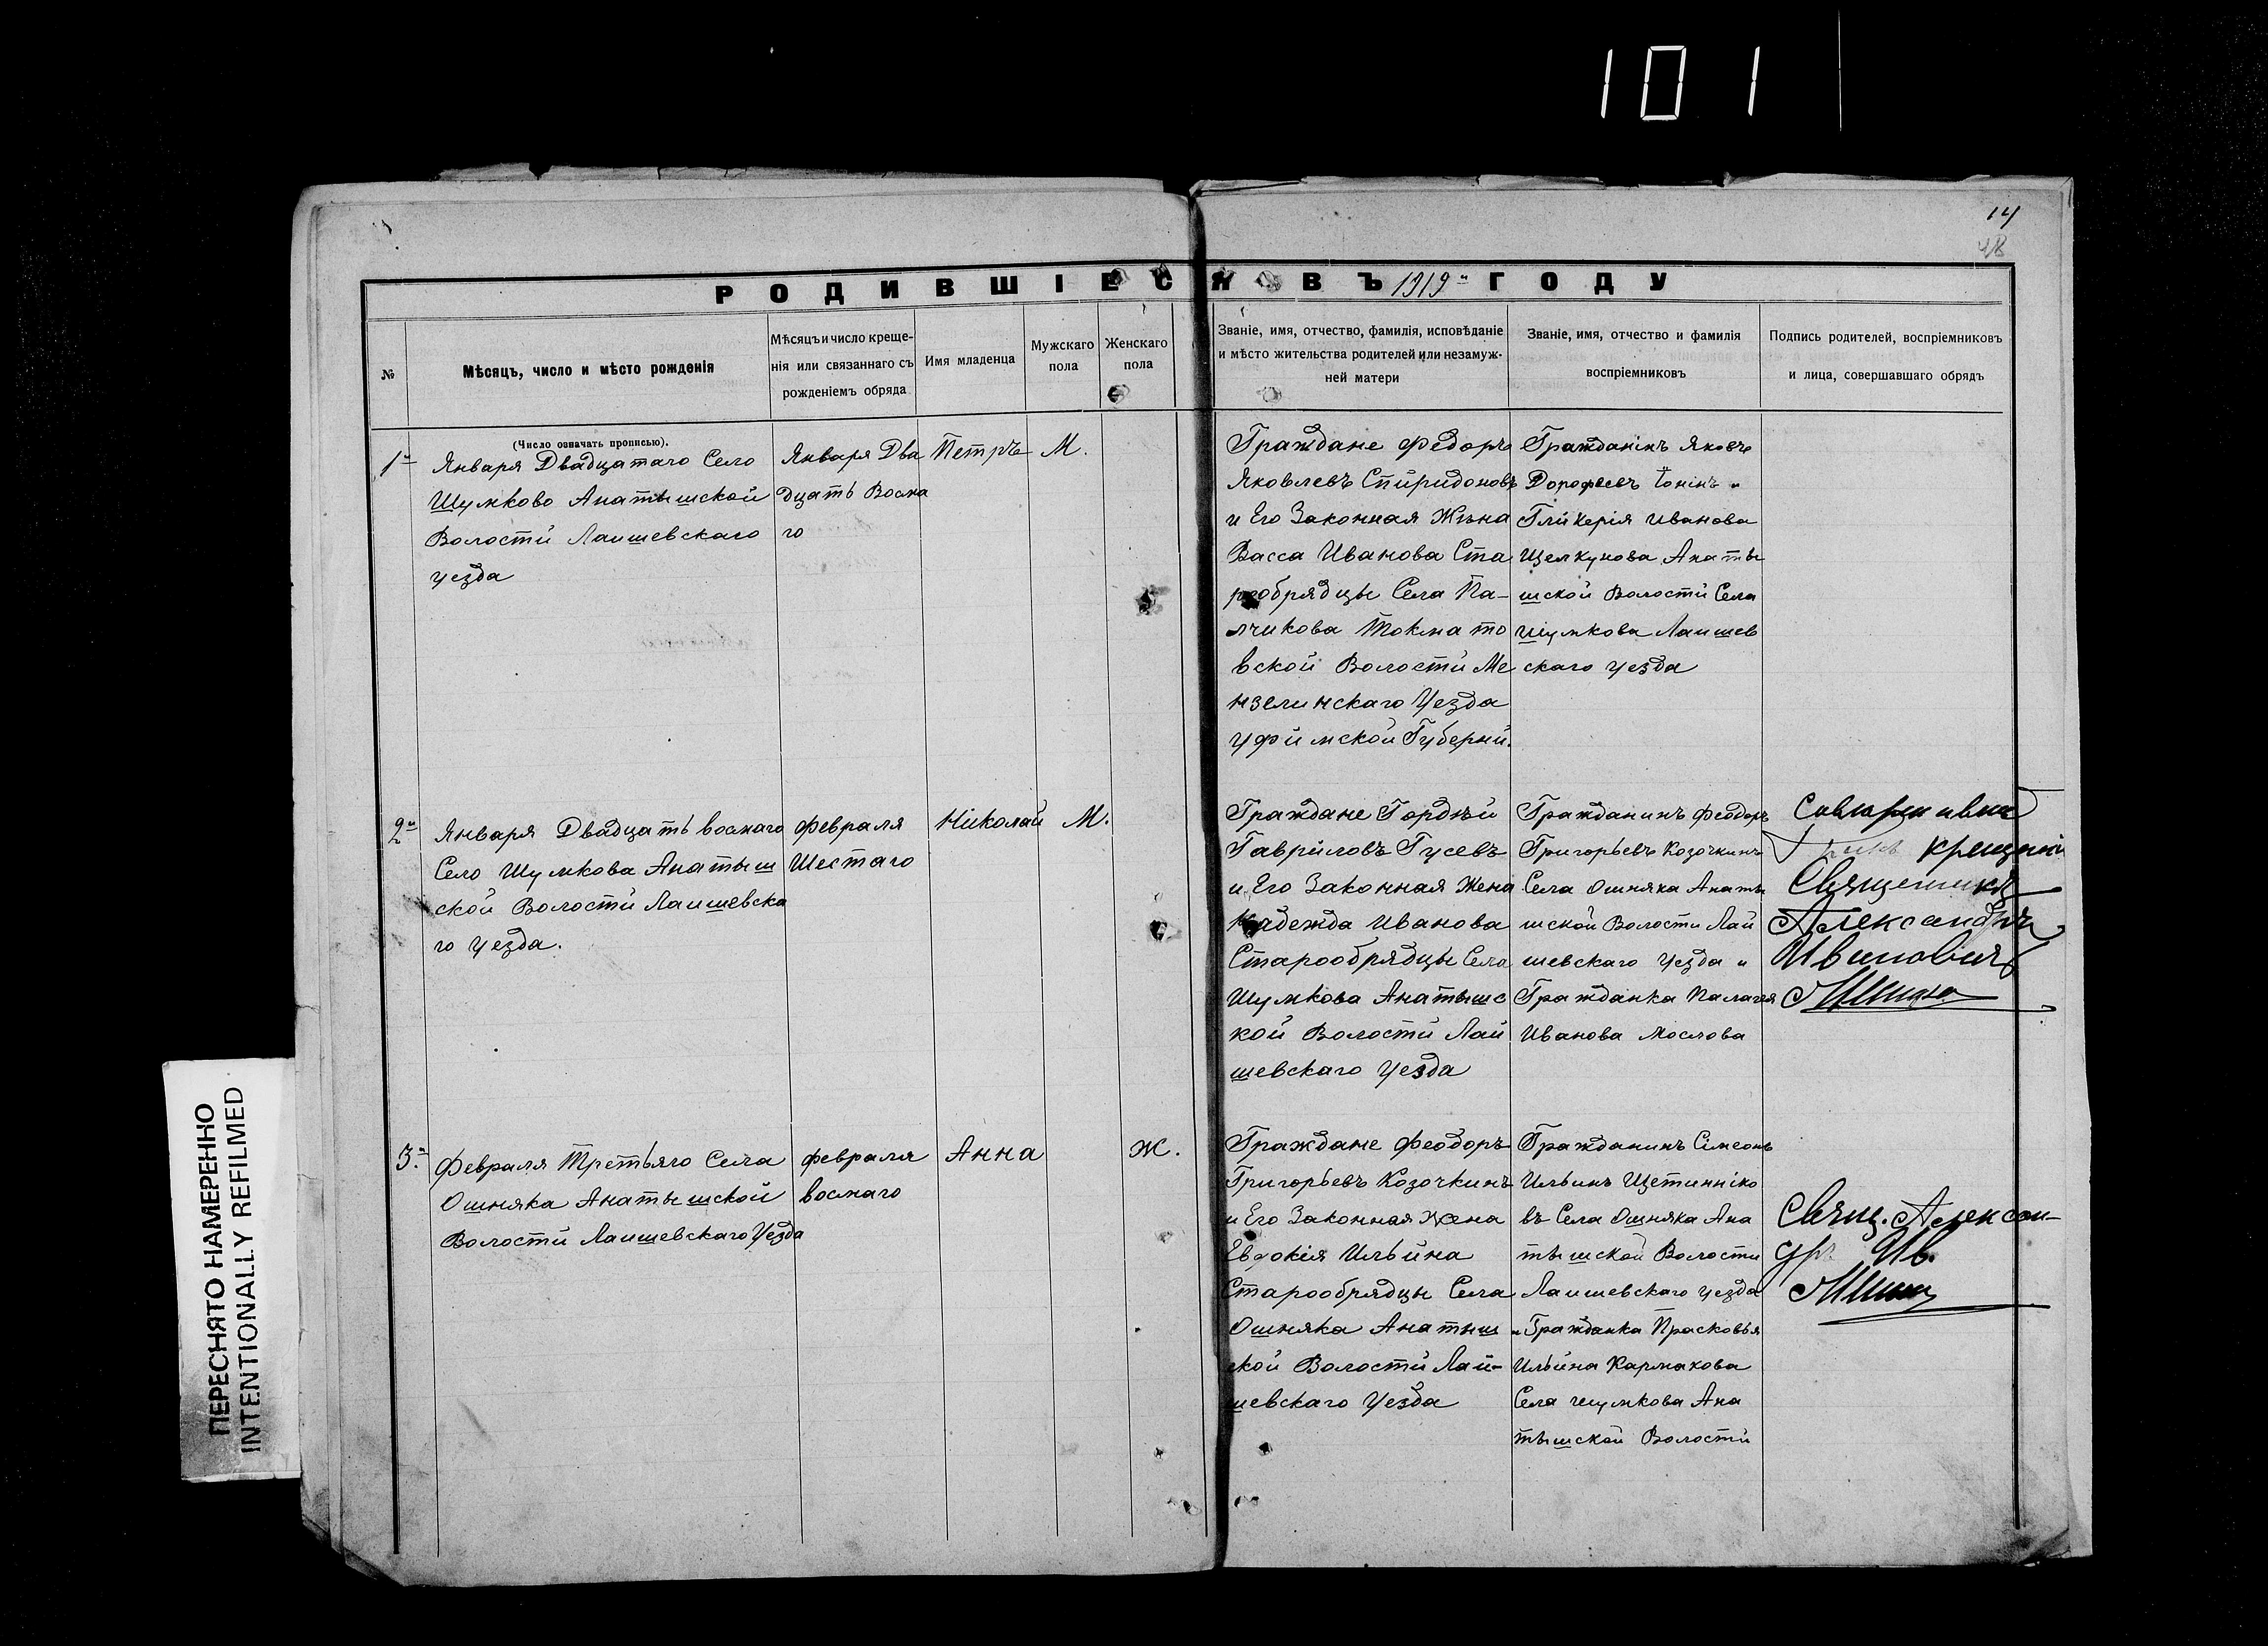 101
14
48
РОДИВШІЕСЯ ВЪ 1919 ГОДУ
№
Мѣсяцъ, число и мѣсто рожденія
Мѣсяцъ и число креще-
нія или связаннаго съ
рожденіемъ обряда
Имя младенца
Мужскаго
пола
Женскаго
пола
Званіе, имя, отчество, фамилія, исповѣданіе
и мѣсто жительства родителей или незамуж-
ней матери
Званіе, имя, отчество и фамилія
воспріемниковъ
Подпись родителей, воспріемниковъ
и лица, совершавшаго обрядъ
(Число означать прописью).
1й
Января Двадцатаго Село
Шумково Анатышской
Волости Лаишевскаго
уезда
Января Два
дцать Восма
го
Петръ
М.
Граждане Федоръ
Яковлевъ Спиридоновъ
и Его Законная Жена
Васса Иванова Ста
рообрядцы Села Па-
лчикова Токмато
вской Волости Ме
нзелинскаго Уезда
Уфимской Губерни.
Гражданинъ Яковъ
Дорофеевъ и
Гликерія Иванова
Щелкунова Анаты
шской Волости Села
Шумкова Лаишев
скаго уезда
2й
Января Двадцать восмаго
Село Шумкова Анатыш
ской Волости Лаишевска
го уезда.
Февраля
Шестаго
Николай
М.
Граждане Гордѣй
Гавриловъ Гусевъ
и Его Законная Жена
Надежда Иванова
Старообрядцы Села
Шумкова Анатышс
кой Волости Лай
шевскаго Уезда
Гражданинъ Феодоръ
Григорьевъ Козочкинъ
Села Ошняка Анаты
шской Волости Лай
шевскаго Уезда и
Гражданка Палагея
Иванова Мослова
Совершивши
крещенія
Священникъ
Александръ
Ивановичъ
3й
Февраля Третьяго Села
Ошняка Анатышской
Волости Лаишевскаго Уезда
Февраля
восмаго
Анна
Ж.
Граждане Феодоръ
Григорьевъ Козочкинъ
и Его Законная Жена
Евдокія Ильина
Старообрядцы Села
Ошняка Анатыш
ской Волости Лай-
шевскаго Уезда
Гражданинъ Симеонъ
Ильинъ Щетиннико
въ Села Ошняка Ана
тышской Волости
Лаишевскаго уезда
и Гражданка Прасковья
Ильина Кармакова
Села Шумкова Ана
тышской Волости
Свящ. Алексан-
дръ Ив.
ПЕРЕСНЯТО НАМЕРЕННО
INTENTIONALLY REFILMED